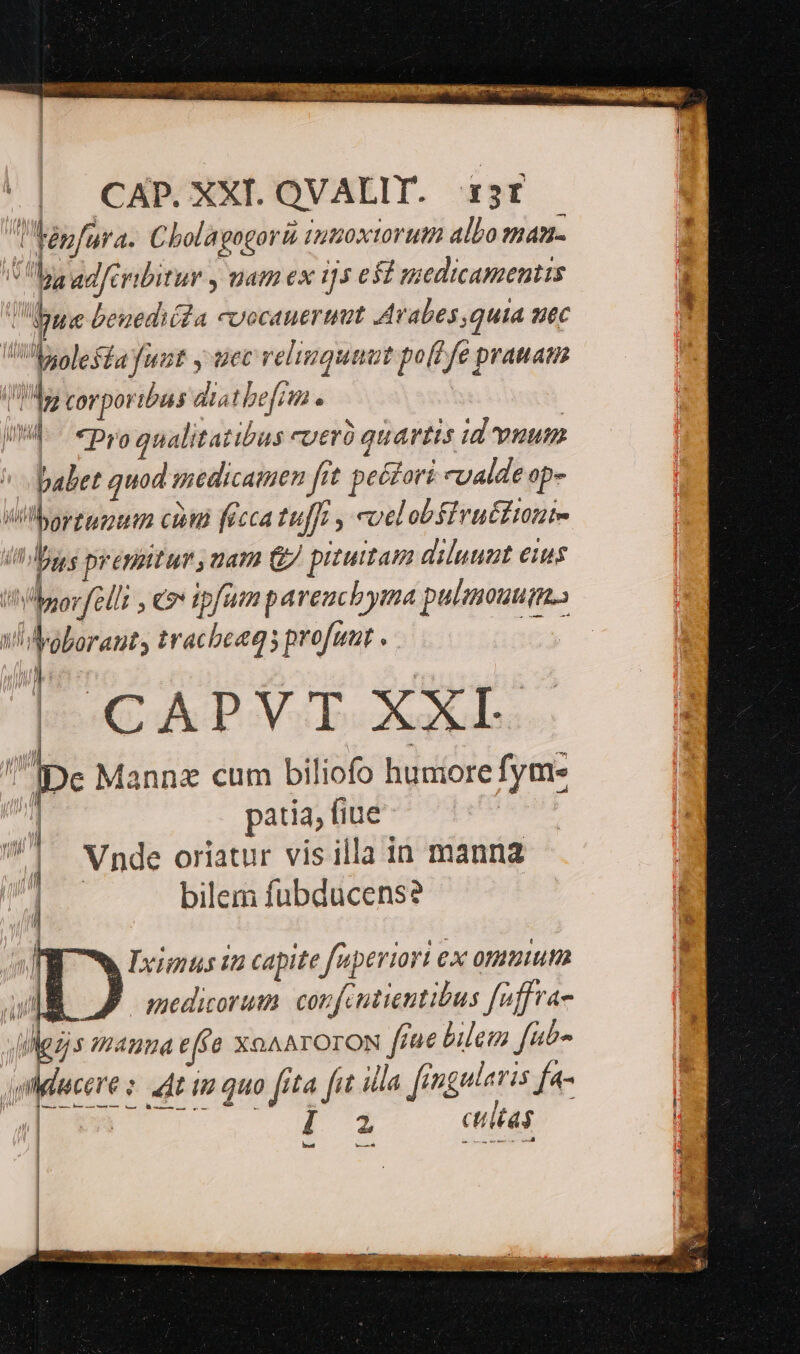 CAP. XXI. QVALIT. 131
ſenſura. Cholagogorũ innoxiorum albo man-
na adſcribitur, nam ex ijs eſt medicamentis
quæ benedicta vocauerunt Arabes, quia nec
moleſta ſunt, nec relinquunt poſt ſe prauam
in corporibus diatheſim.
Pro qualitatibus verò quartis id vnum
habet quod medicamen ſit pectori valde op-
portunum cùm ſicca tuſſi, vel obſtructioni-
bus premitur, nam & pituitam diluunt eius
morſelli, & ipſum parenchyma pulmonum
roborant, tracheæq; proſunt.
CAPVT XXI.
De Mannæ cum bilioſo humore ſym-
patia, ſiue
Vnde oriatur vis illa in manna
bilem ſubducens?
DIximus in capite ſuperiori ex omnium
medicorum conſentientibus ſuffra-
gijs manna eſſe ΧΟΛΑΓΟΓΟΝ ſiue bilem ſub-
ducere: At in quo ſita ſit illa ſingularis fa-
I 2 cultas